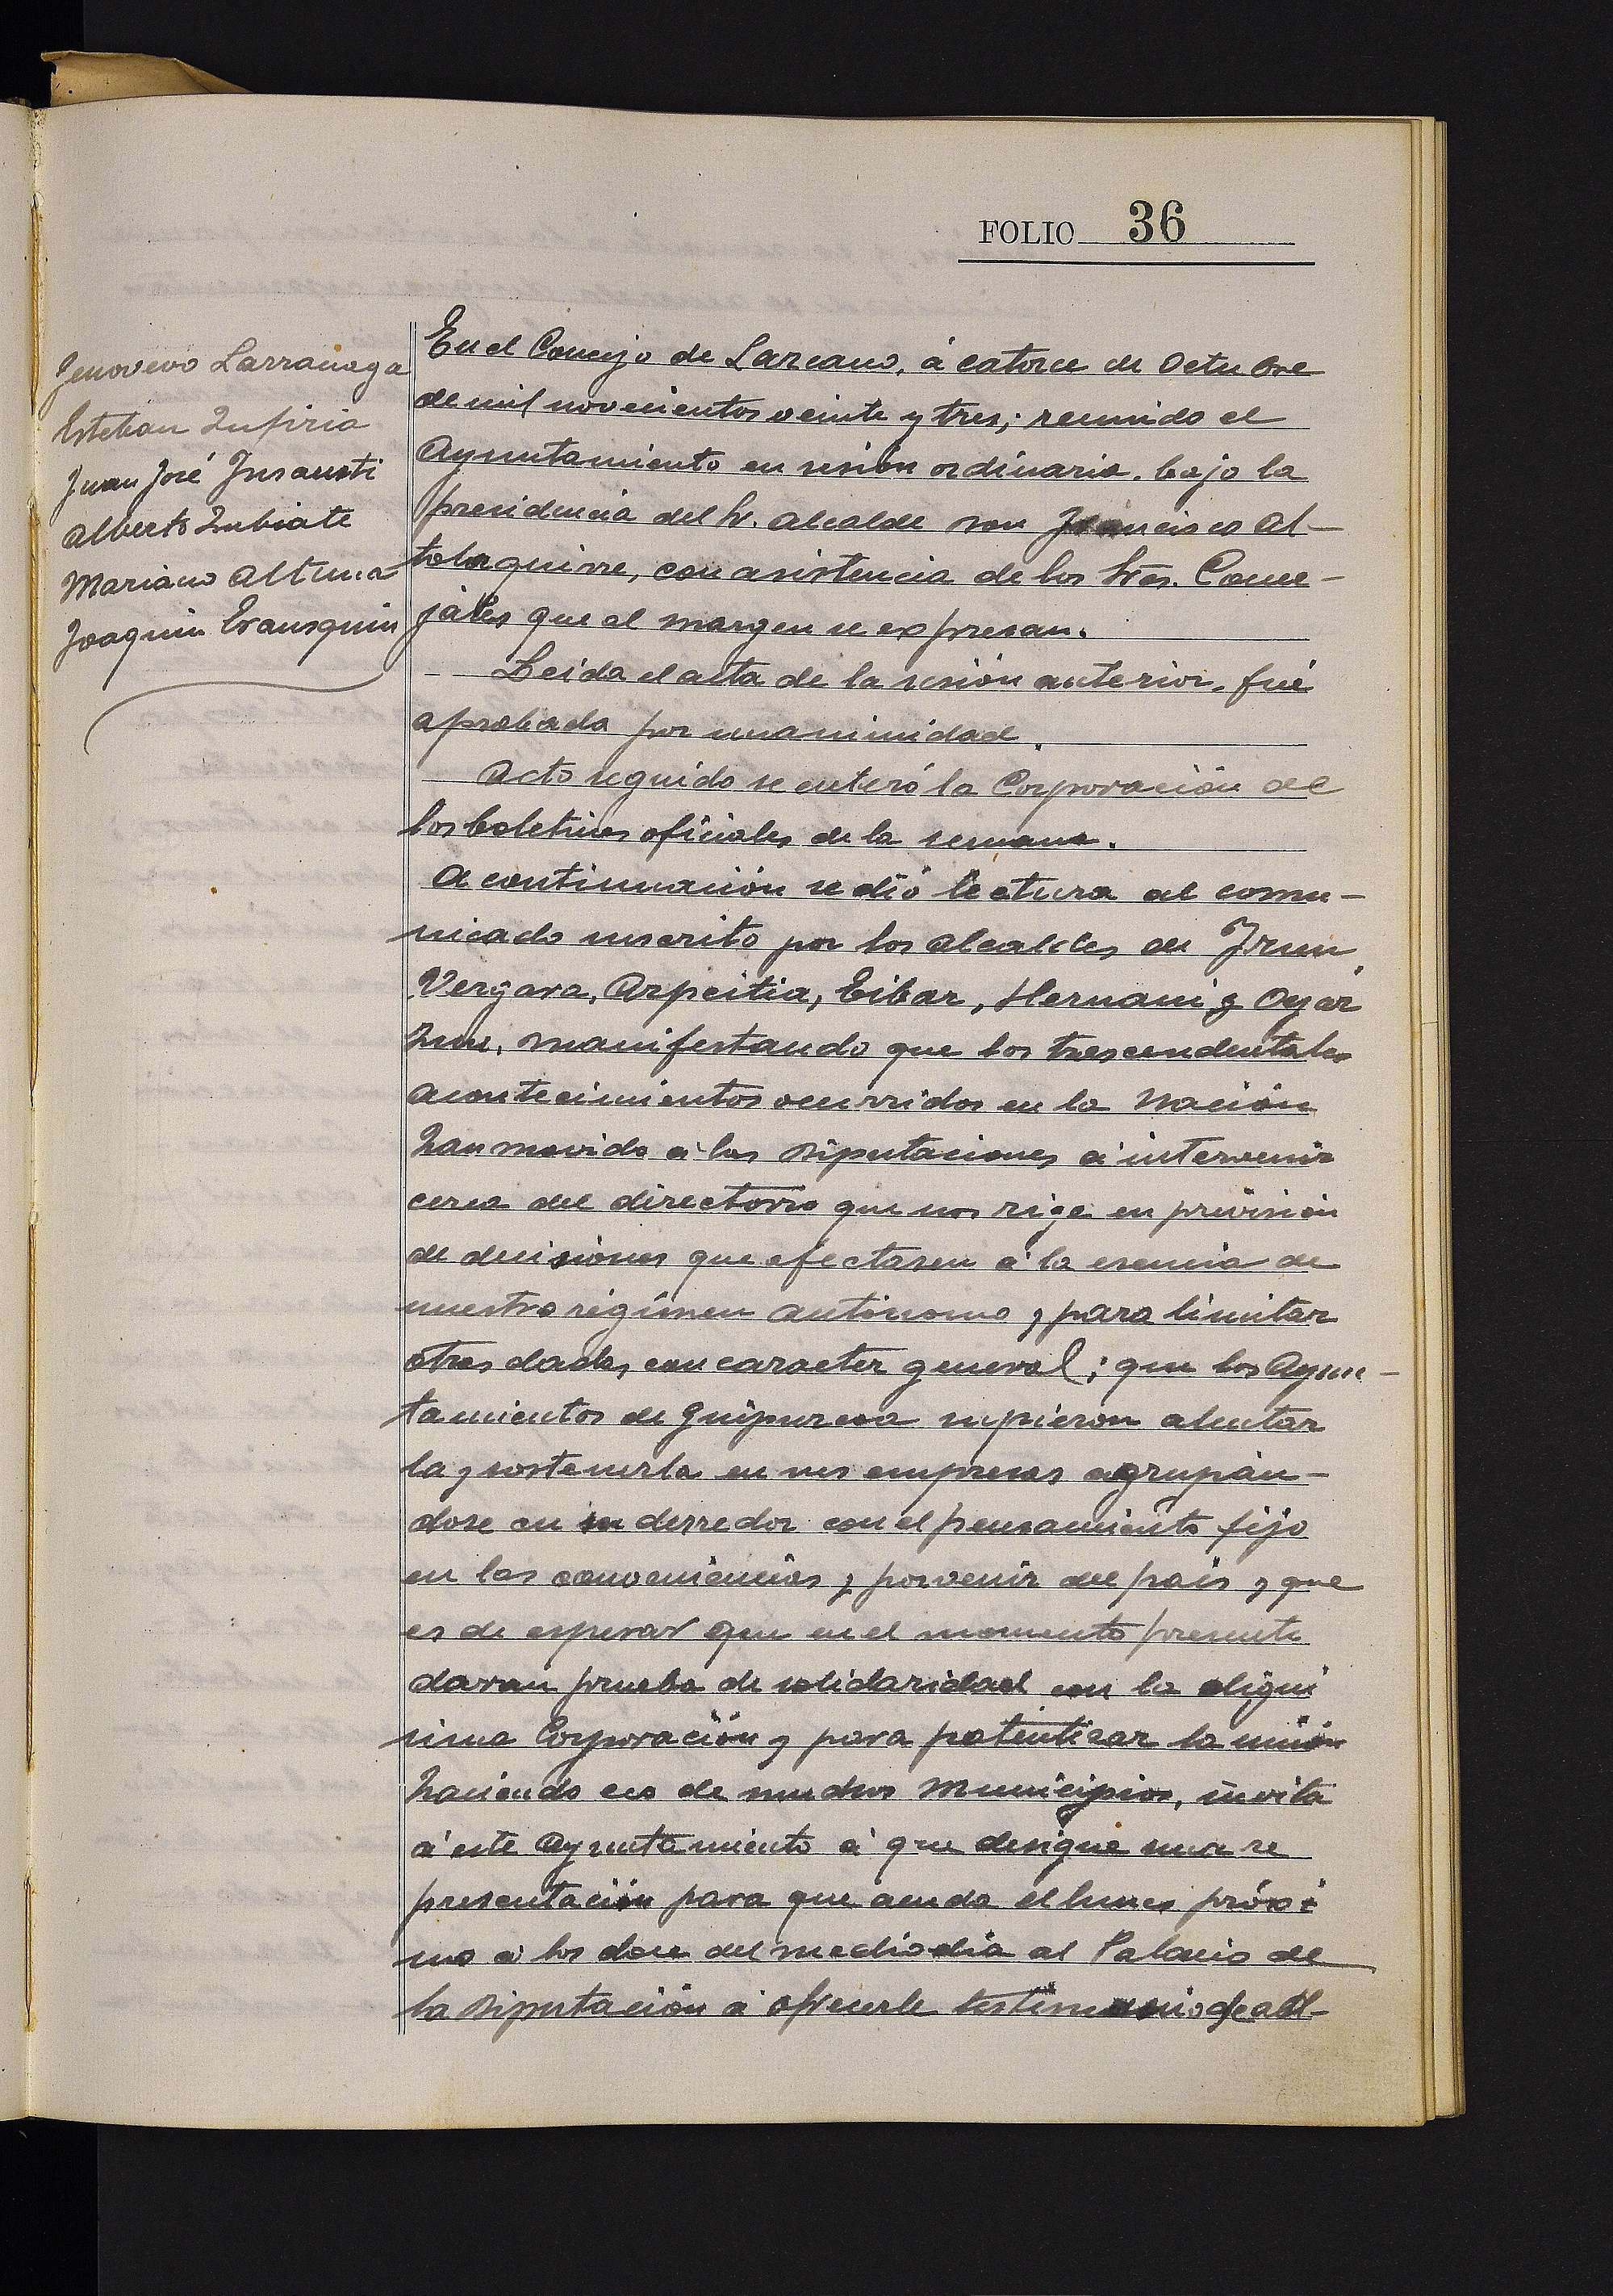 FOLIO 36
Genovevo Larrañaga
Esteban Zufiria
Juan José Insausti
Alberto Zubiate
Mariano Altuna
Joaquin Erausquin
En el Concejo de Lazcano, á catorce de Octubre
de mil novecientos veinte y tres; reunido el
Ayuntamiento en sesión ordinaria, bajo la
presidencia del Sr. Alcalde Don Francisco Al-
tolaguirre, con asistencia de los Sres. Conce-
jales que al margen se expresan.
Leida el acta de la sesión anterior, fué
aprobada por unanimidad.
Acto seguido se enteró la Corporación de
los boletines oficiales de la semana.
A continuación se dió lectura al comu-
nicado suscrito por los alcaldes de Irun,
Vergara, Azpeitia, Eibar, Hernani y Oyar
zun, manifestando que los trescendentales
acontecimientos ocurridos en la Nación
han movido á las Diputaciones á intervenir
cerca del directorio que nos rige en previsión
de decisiones que afectasen á la esencia de
nuestro régimen autónomo y para limitar
otras dadas con caracter general; que los Ayun-
tamientos de Guipuzcoa supieron alentar
la y sostenerla en sus empresas agrupán-
dose en su derredor con el pensamiento fijo
en las conveniencias y porvenir del país y que
es de esperar que en el momento presente
daran prueba de solidaridad con la digni
sima Corporación y para patentizar la unión
haciendo eco de muchos Municipios, invita
á este Ayuntamiento á que designe una re
presentación para que acuda el lunes próxi
mo á las doce del mediodía al Palacio de
la Diputación á ofrecerle testimonio de ad-